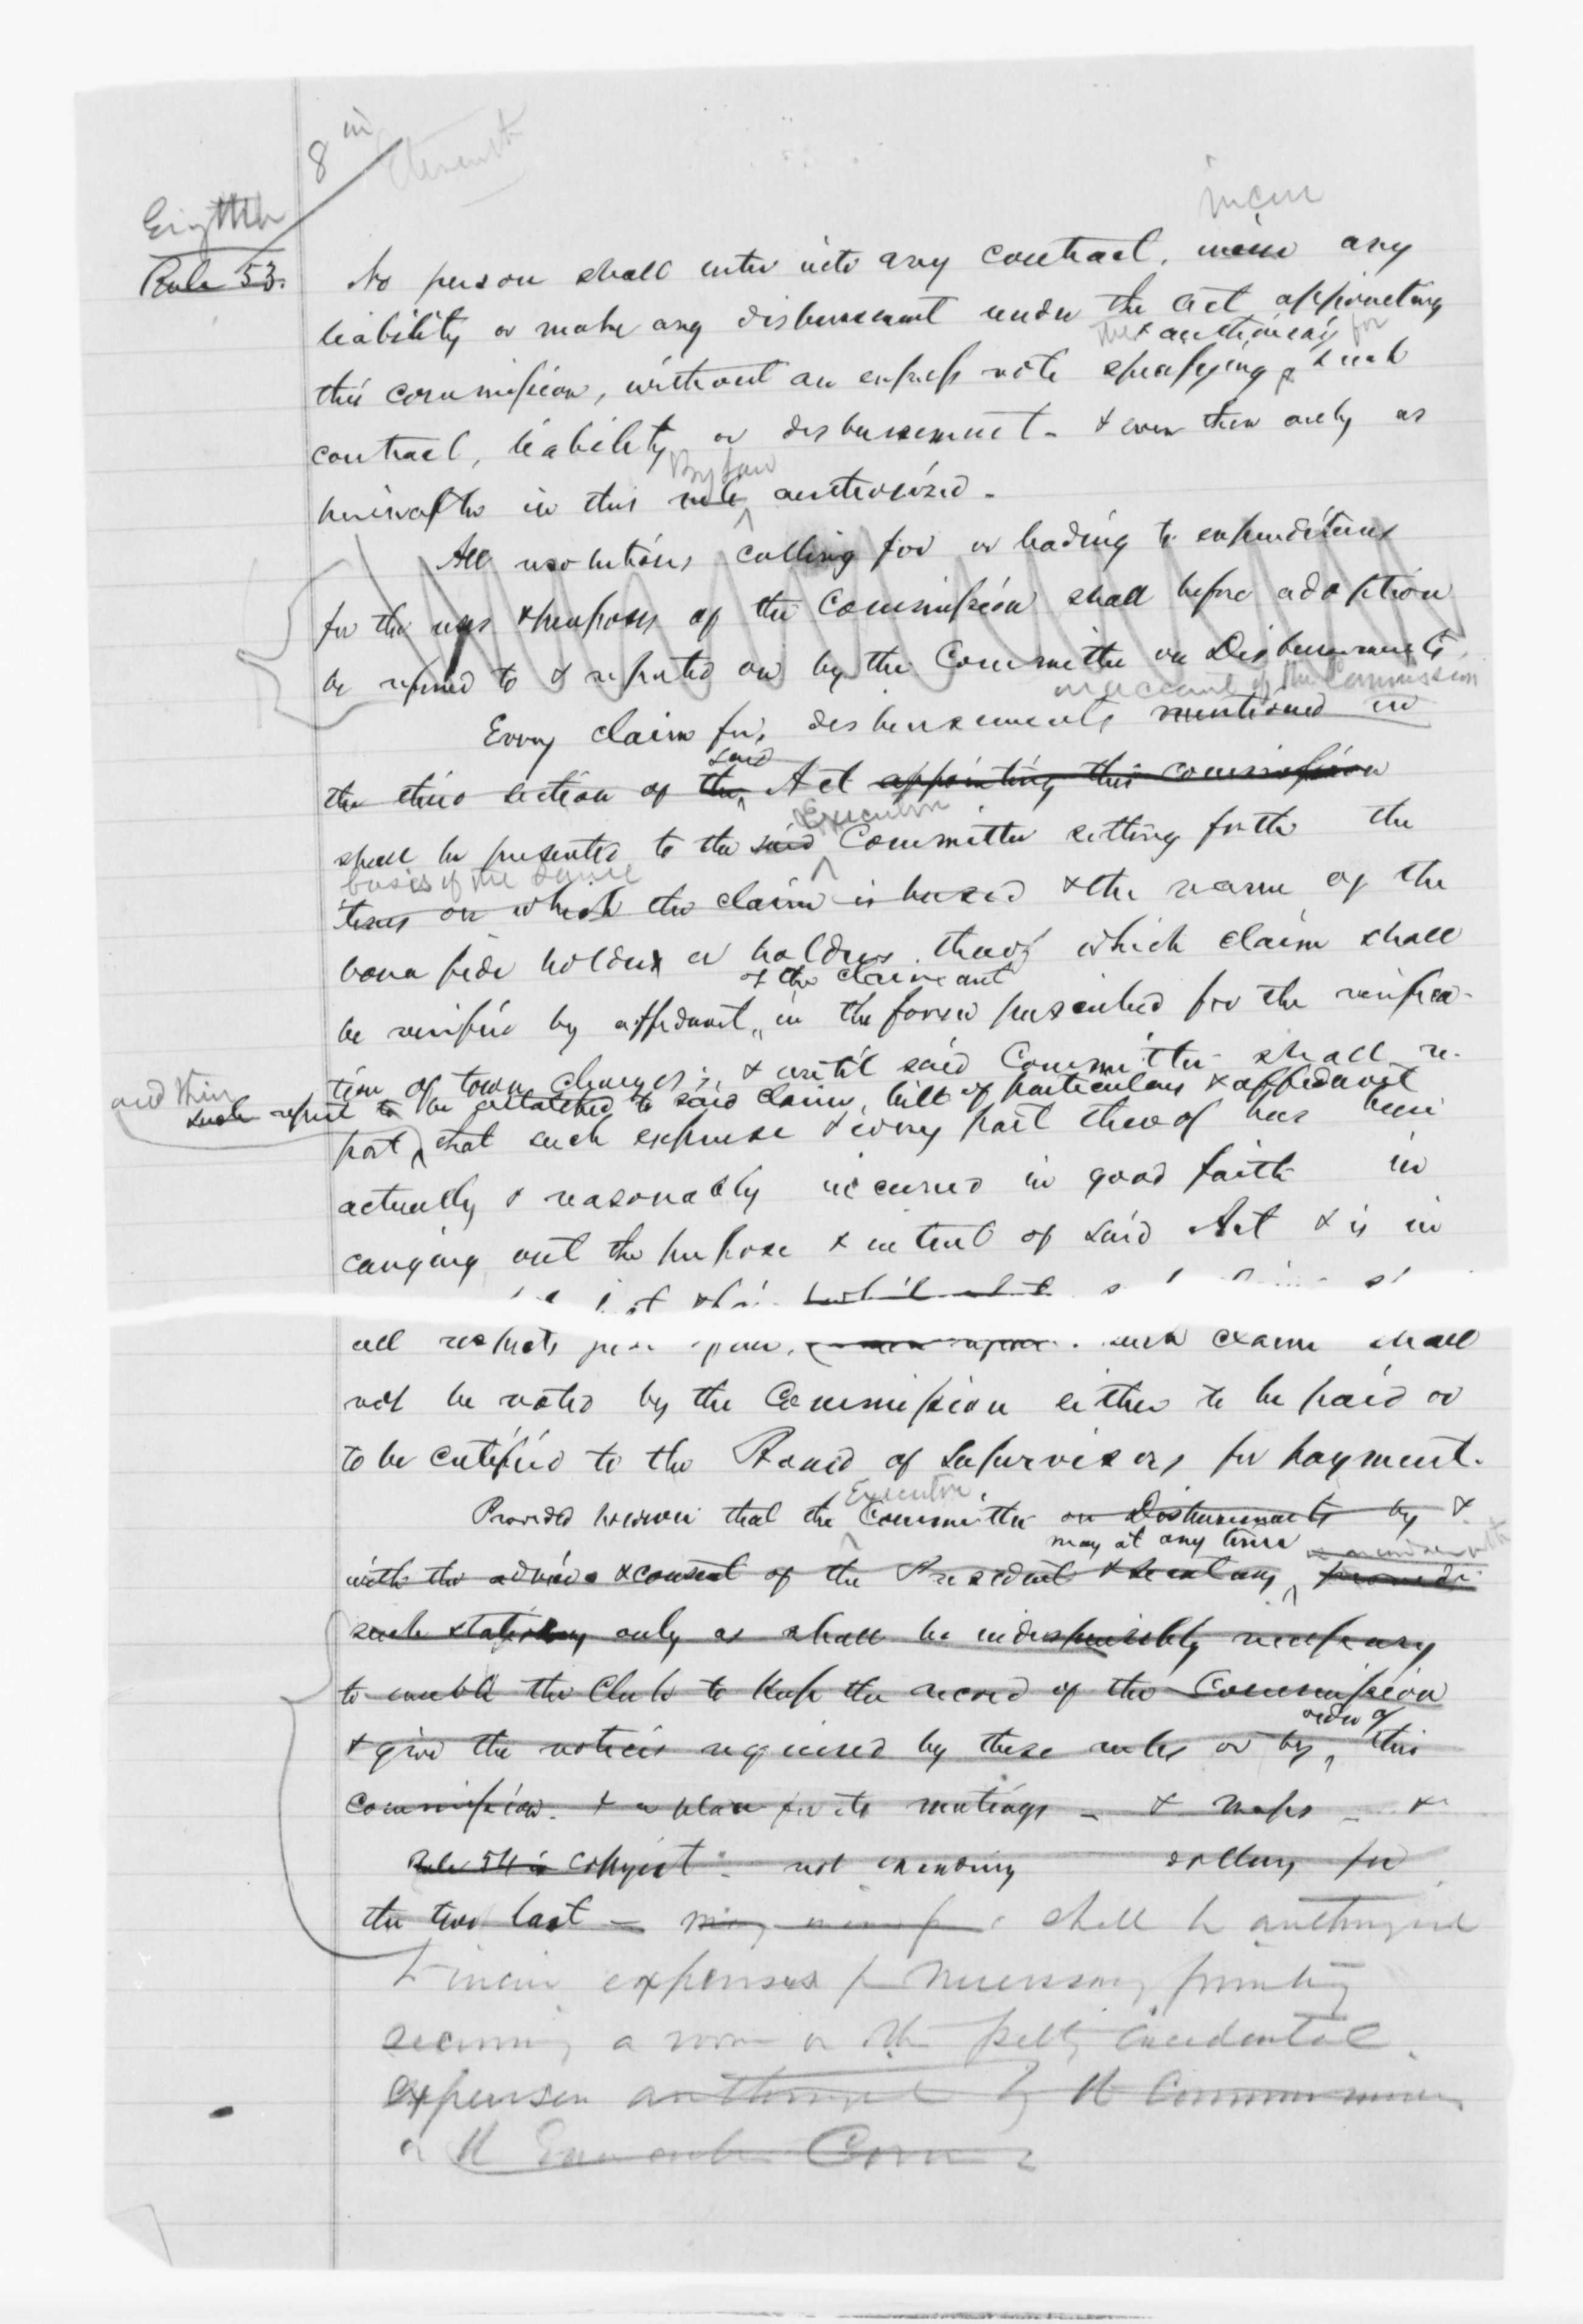 8
Eighth
Rule 53.
incur
No person shall enter into any contract, incur any
liability or make any disbursement under the Act appointing
the & authorizing for
this commission, without an express vote specifying such
contract, liability or disbursement - & even then only as
By law
hereinafter in this rule authorized -
All resolutions calling for or leading to expenditures
for the uses & purposes of the Commission shall before adoption
be referred to & reported on by the Committee on Disbursements.
on account of the Commission
Every claim for disbursements mentioned in
said
the third section of the Act appointing this commission
Executive
shall be presented to the said Committee setting forth the
basis of the same
items on which the claim is based & the name of the
bona fide holder or holders thereof which claim shall
of the claimant
be verified by affidavit in the form prescribed for the verifica-
tion of town charges; & until said Committee shall re-
and their
such report to be attached to said claim, bill of particulars & affidavit
port that such expense & every part thereof has been
actually & reasonably incurred in good faith in
carrying out the purpose & intent of said Act & is in
all respects such claim shall
not be voted by the Commission either to be paid or
to be certified to the Board of Supervisors for payment.
Executive
Provided however that the Committee on Disbursements by &
may at any time
with the advice & consent of the President & Secretary provide
such stationery only as shall be indispensibly necessary
to enable the Clerk to keep the record of the Commission
order of
& give the notices required by these rules or by this
commission - & a place for its meetings - & maps - &
Rule 54 is copyist - not exceeding dollars for
the two last - shall be authorized
to incur expenses for necessary printing
securing a room or other petty incidental
expenses authorized by the Commission
or the Executive Com